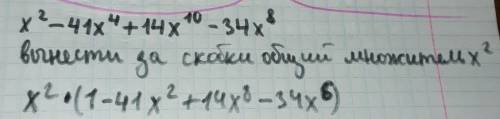 x² - 41x⁴ + 14x¹⁰ - 34x⁸
вынести за скобки общий множителем x²
x² · (1 - 41x² + 14x⁸ - 34x⁶)